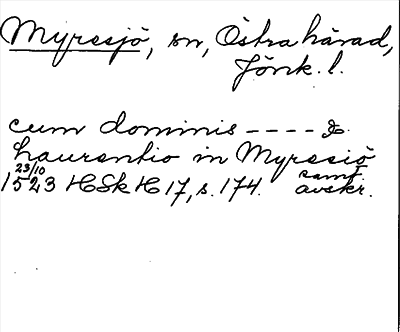 Myresjö, sn, Östra härad,
Jönk. l.
cum dominis ---- &
Laurentio in Myresiö
23/10 samt.
1523 HSkH 17, s. 174. avskr.